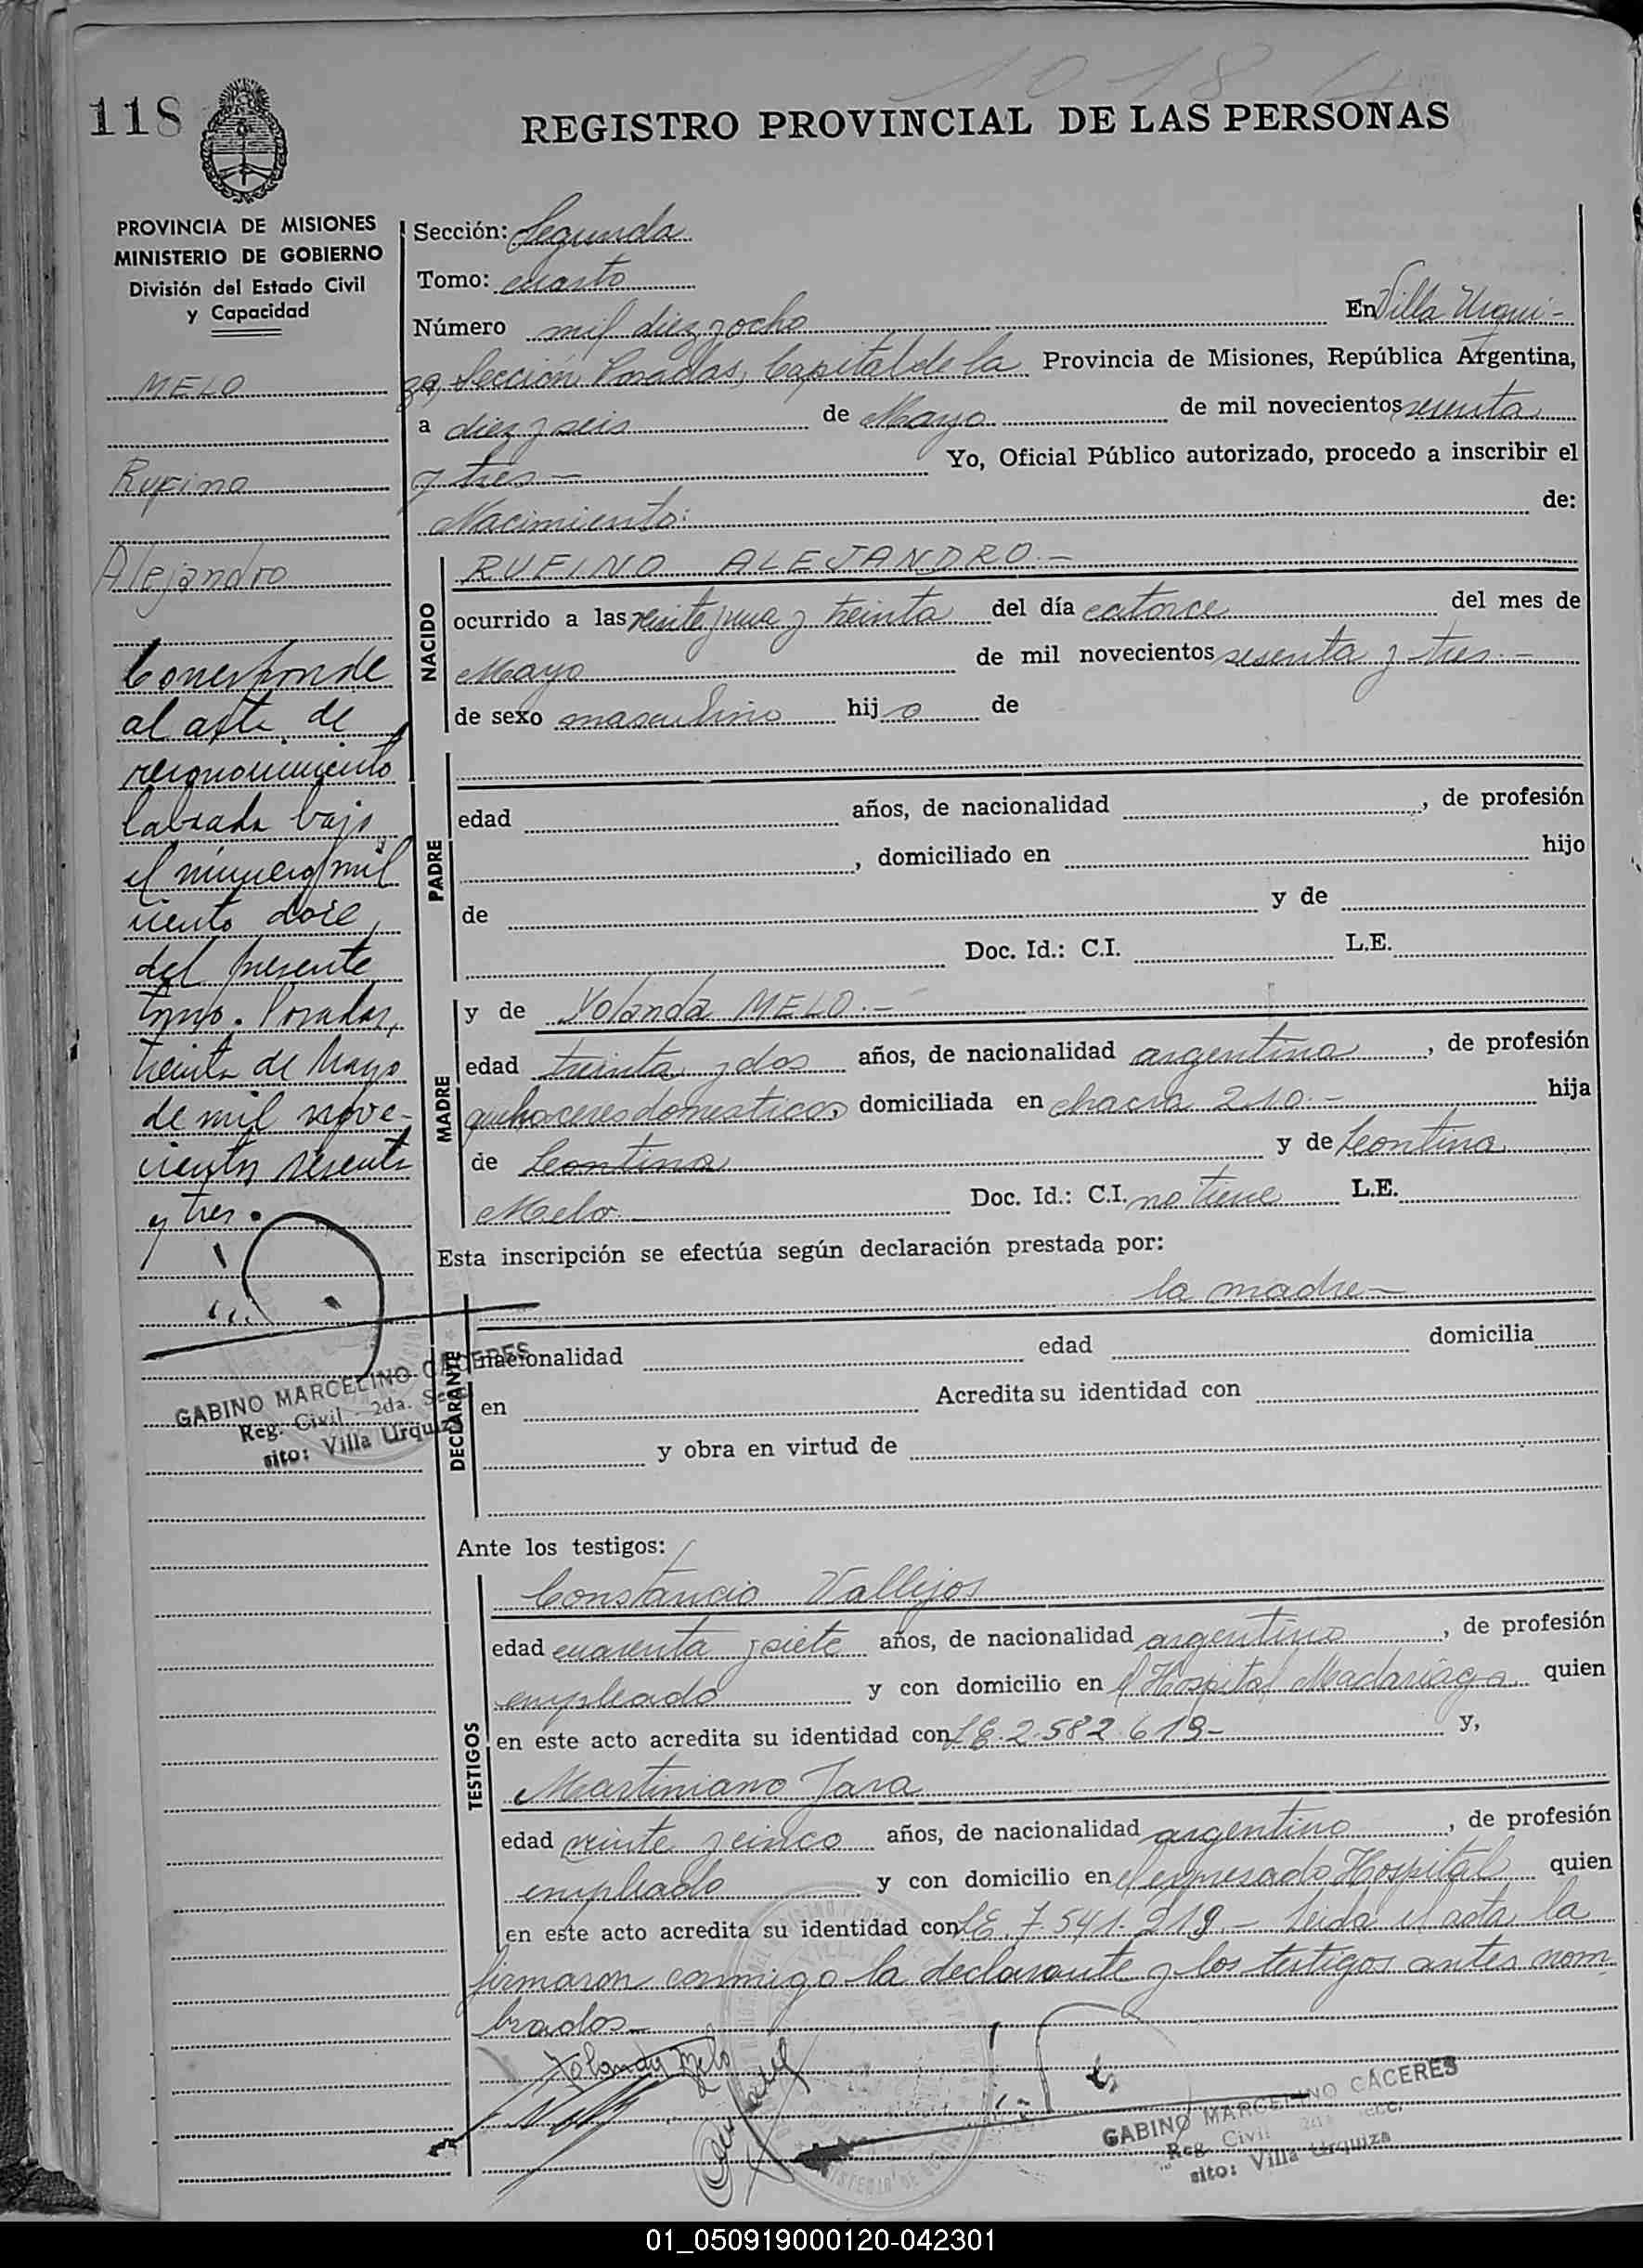 118
REGISTRO PROVINCIAL DE LAS PERSONAS
PROVINCIA DE MISIONES
MINISTERIO DE GOBIERNO
División del Estado Civil
y Capacidad
MELO
Rufino
Alejandro
Corresponde
al acta de
reconocimiento
labrada bajo
el número mil
ciento doce
del presente
tomo. Posadas,
treinta de Mayo
de mil nove-
cientos sesenta
y tres.
GABINO MARCELINO CACERES
Reg. Civil - 2da. Secc.
sito: Villa Urquiza
Sección: Segunda
Tomo: cuarto
Número mil diez y ocho En Villa Urqui-
za, Sección Posadas, Capital de la Provincia de Misiones, República Argentina,
a diez y seis de Mayo de mil novecientos sesenta
y tres - Yo, Oficial Público autorizado, procedo a inscribir el
Nacimiento: de:
NACIDO
RUFINO ALEJANDRO.-
ocurrido a las veinte y una y treinta del día catorce del mes de
Mayo de mil novecientos sesenta y tres.-
de sexo masculino hijo de
PADRE
edad años, de nacionalidad , de profesión
, domiciliado en hijo
de y de
Doc. Id.: C.I. L.E.
MADRE
y de Yolanda MELO.-
edad treinta y dos años, de nacionalidad argentina , de profesión
quehaceres domesticos, domiciliada en chacra 210.- hija
de Leontina y de Leontina
Melo Doc. Id.: C.I. no tiene L.E.
Esta inscripción se efectúa según declaración prestada por:
la madre-
DECLARANTE
nacionalidad edad domicilia
en Acredita su identidad con
y obra en virtud de
Ante los testigos:
TESTIGOS
Constancio Vallejos
edad cuarenta y siete años, de nacionalidad argentino , de profesión
empleado y con domicilio en el Hospital Madariaga quien
en este acto acredita su identidad con LE. 2.582.619- y,
Martiniano Jara
edad veinte y cinco años, de nacionalidad argentino , de profesión
empleado y con domicilio en el expresado Hospital quien
en este acto acredita su identidad con LE. 7.541.219 - Leida el acta, la
firmaron conmigo la declarante y los testigos antes nom
brados-
Yolanda Melo
GABINO MARCELINO CACERES
Reg. Civil 2da. Secc.
sito: Villa Urquiza
01_050919000120-042301